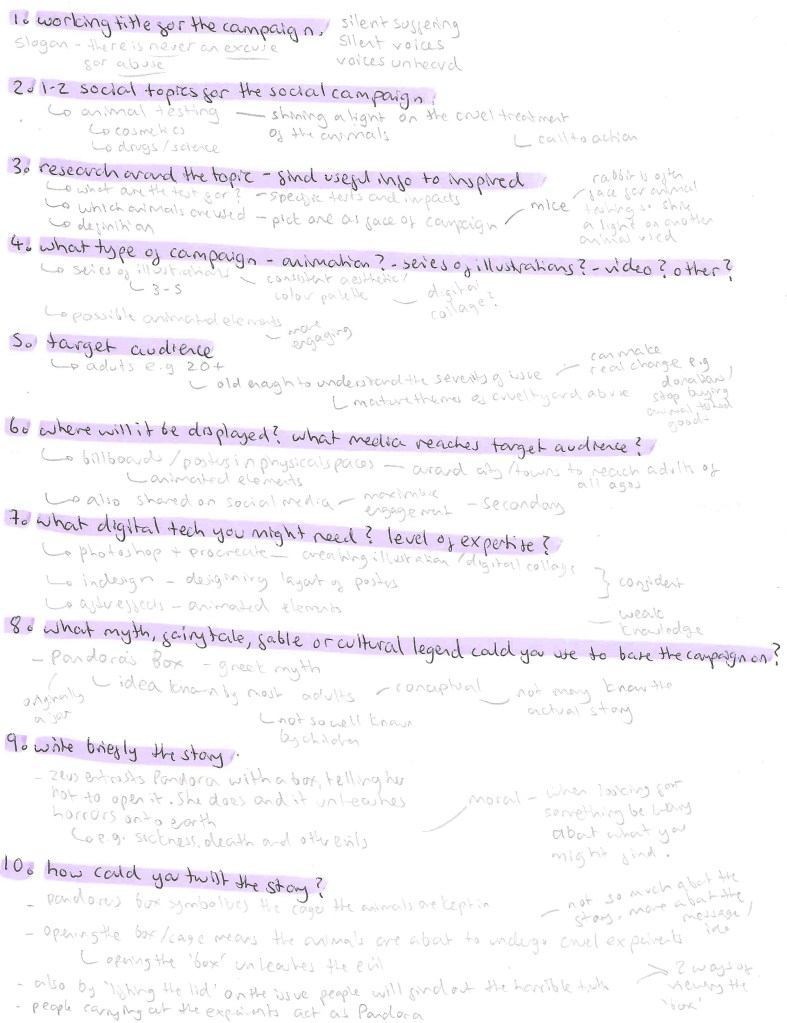 1. working title for the campaign. silent suffering
silent voices
voices unheard
slogan - there is never an excuse
for abuse
2. 1-2 social topics for the social campaign.
animal testing — shining a light on the cruel treatment
of the animals
call to action
cosmetics
drugs/science
3. research around the topic - find useful info to inspired
what are the test for? - specific tests and impacts
which animals are used - pick one as face of campaign / mice
definition
rabbit is often
face for animal
testing so shine
a light on another
animal used
4. what type of campaign - animation? - series of illustrations? - video? other?
series of illustrations
3-5
consistent aesthetic/
colour palette
digital
collage?
possible animated elements
more
engaging
5. target audience
adults e.g 20+
old enough to understand the severity of issue
mature themes of cruelty and abuse
can make
real change e.g
donation/
stop buying
animal tested
goods
6. where will it be displayed? what media reaches target audience?
billboards/posters in physical spaces — around city/towns to reach adults of
all ages
animated elements
also shared on social media - maximise
engagement - secondary
7. what digital tech you might need? level of expertise?
photoshop + procreate - creating illustration/digital collage
indesign - designing layout of posters
confident
aftereffects - animated elements
weak
knowledge
8. what myth, fairytale, fable or cultural legend could you use to base the campaign on?
- Pandora's Box - greek myth
originally
a jar
idea known by most adults - conceptual - not many know the
actual story
not so well known
by children
9. write briefly the story.
- zeus entrusts Pandora with a box, telling her
not to open it. She does and it unleashes
horrors onto earth
e.g. sickness, death and other evils
moral - when looking for
something be wary
about what you
might find.
10. how could you twist the story?
- pandoras box symbolises the cages the animals are kept in
- not so much about the
story, more about the
message/
idea
- opening the box/cage means the animals are about to undergo cruel experiments
opening the 'box' unleashes the evil
- also by 'lifting the lid' on the issue people will find out the horrible truth
2 ways of
viewing the
'box'
- people carrying out the experiments act as Pandora